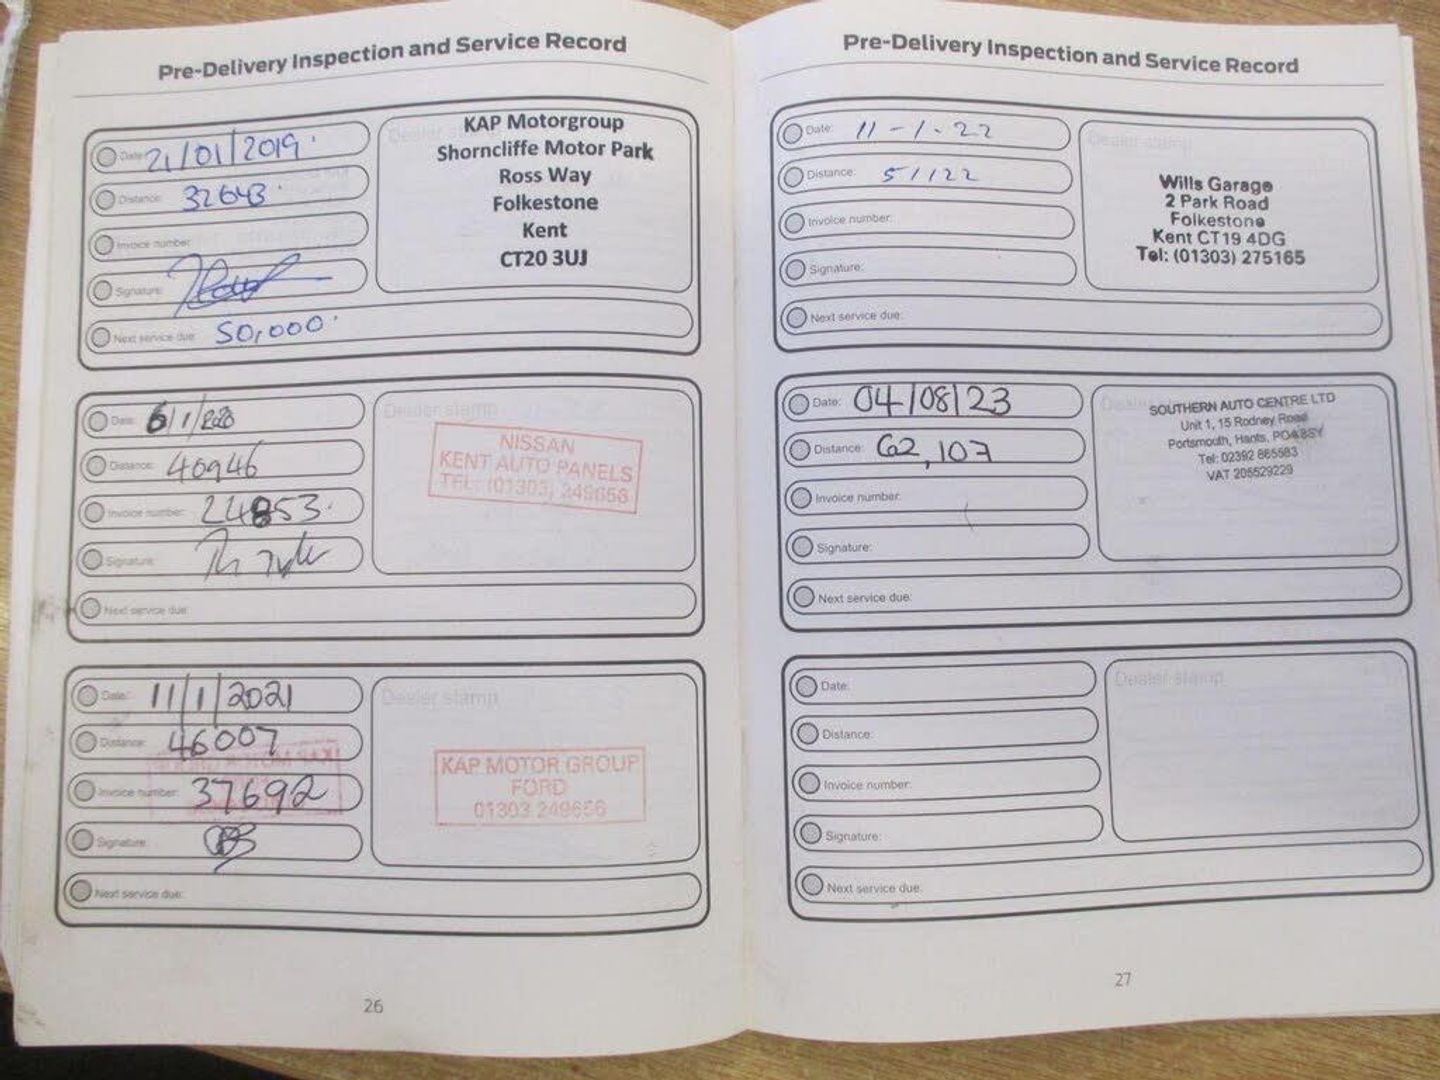 Pre-Delivery Inspection and Service Record
Date: 21/01/2019
Distance: 32643
Invoice number:
Signature:
Next service due: 50,000
Dealer stamp
KAP Motorgroup
Shorncliffe Motor Park
Ross Way
Folkestone
Kent
CT20 3UJ
Date: 6/1/2020
Distance: 40946
Invoice number: 24853
Signature:
Next service due:
Dealer stamp
NISSAN
KENT AUTO PANELS
TEL: (01303) 249656
Date: 11/1/2021
Distance: 46007
Invoice number: 37692
Signature:
Next service due:
Dealer stamp
KAP MOTOR GROUP
FORD
01303 249656
26
Pre-Delivery Inspection and Service Record
Date: 11-1-22
Distance: 51122
Invoice number:
Signature:
Next service due:
Dealer stamp
Wills Garage
2 Park Road
Folkestone
Kent CT19 4DG
Tel: (01303) 275165
Date: 04/08/23
Distance: 62,107
Invoice number:
Signature:
Next service due:
SOUTHERN AUTO CENTRE LTD
Unit 1, 15 Rodney Road
Portsmouth, Hants, PO4 8SY
Tel: 02392 865583
VAT 205529229
Date:
Distance:
Invoice number:
Signature:
Next service due:
Dealer stamp
27